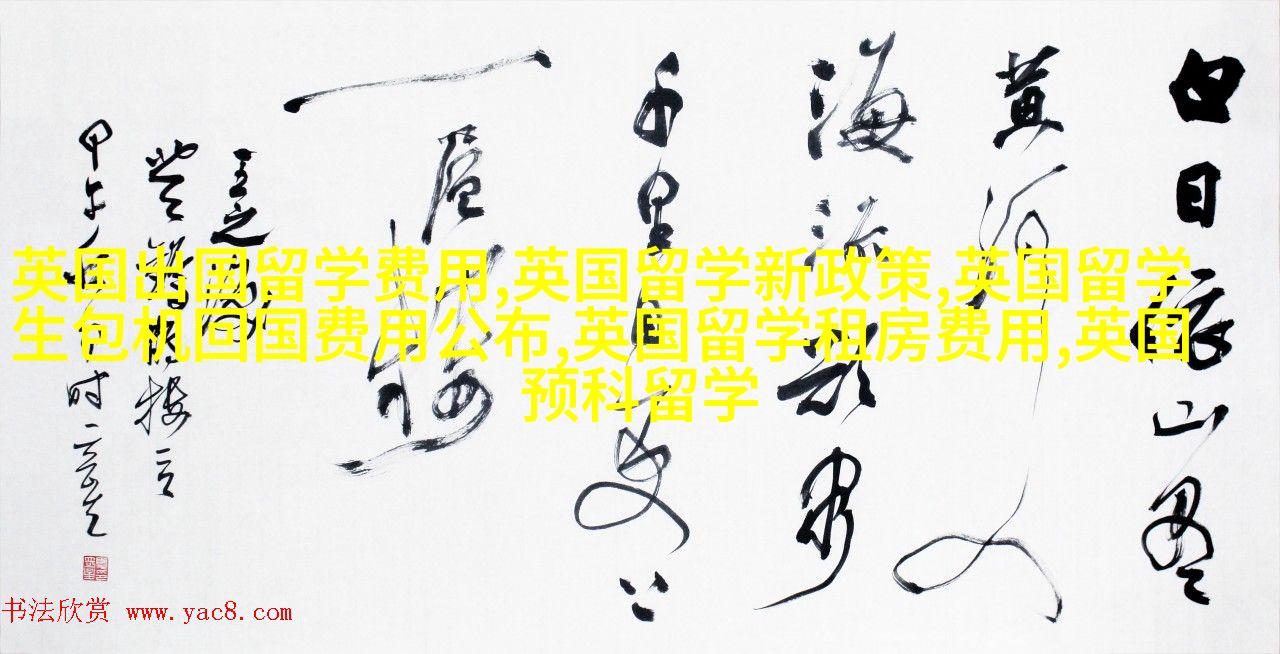 白日依山尽
黄河入
海流欲穷
千里目更上
一层楼
王之涣
登鹳雀楼
甲午年
英国出国留学费用,英国留学新政策,英国留学
生包机回国费用公布,英国留学租房费用,英国
预科留学
书法欣赏 www.yac8.com